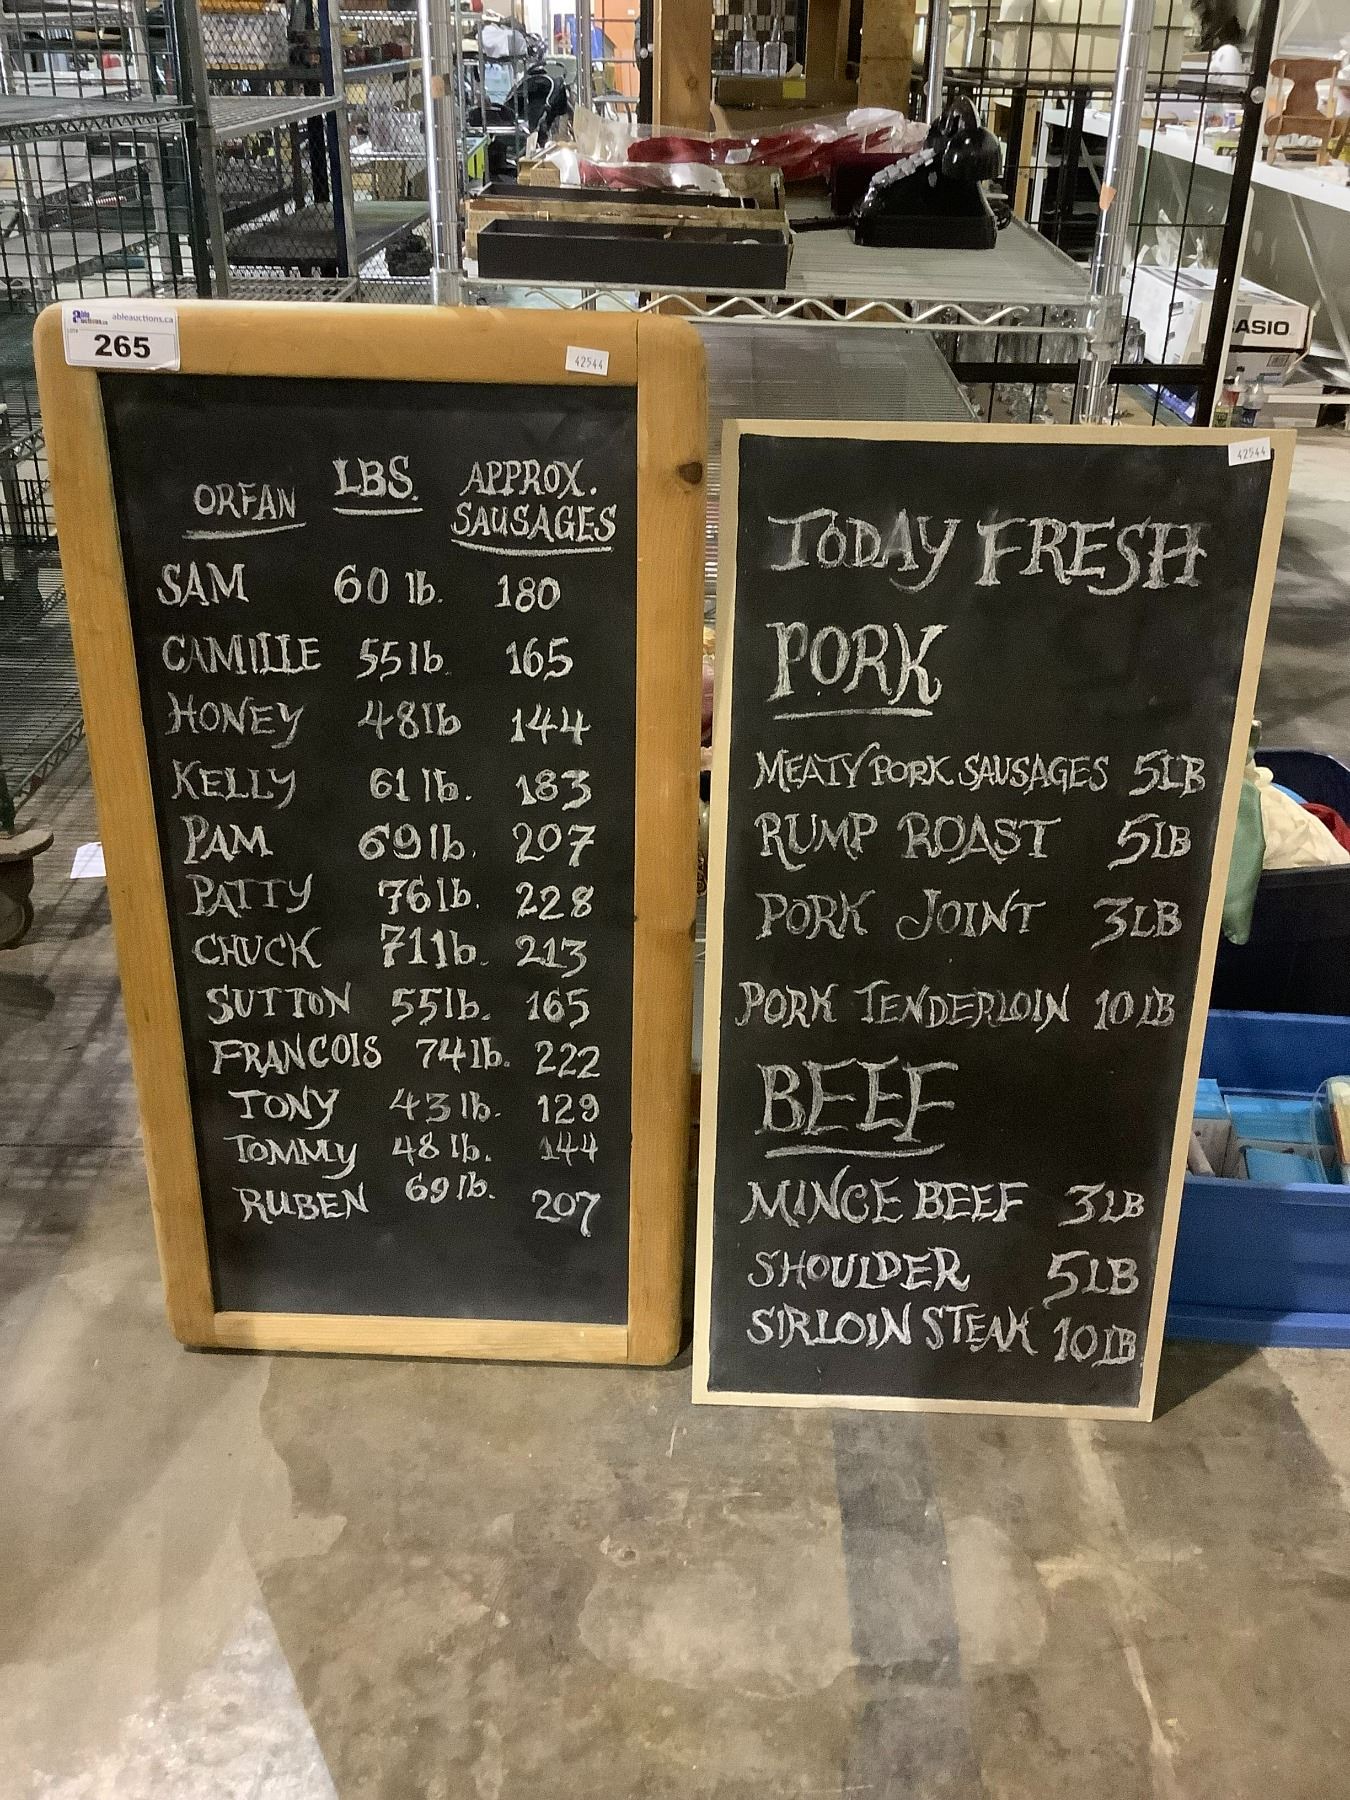 able auctions.ca ableauctions.ca
LOT#
265
42544
ORFAN LBS. APPROX. SAUSAGES
SAM 60 lb. 180
CAMILLE 55 lb. 165
HONEY 48 lb 144
KELLY 61 lb. 183
PAM 69 lb. 207
PATTY 76 lb. 228
CHUCK 71 lb. 213
SUTTON 55 lb. 165
FRANCOIS 74 lb. 222
TONY 43 lb. 129
TOMMY 48 lb. 144
RUBEN 69 lb. 207
42544
TODAY FRESH
PORK
MEATY PORK SAUSAGES 5LB
RUMP ROAST 5LB
PORK JOINT 3LB
PORK TENDERLOIN 10LB
BEEF
MINCE BEEF 3LB
SHOULDER 5LB
SIRLOIN STEAK 10LB
CASIO